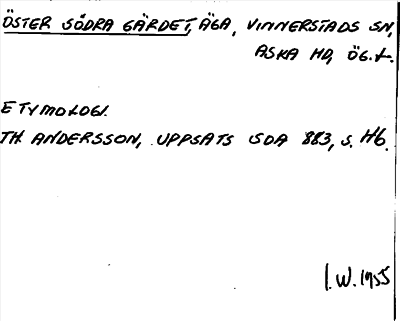 ÖSTER SÖDRA GÄRDET, ÄGA, VINNERSTADS SN,
ASKA HD, ÖG.L.
ETYMOLOGI.
TH. ANDERSSON, UPPSATS SDA 883, S. 46.
I.W. 1955